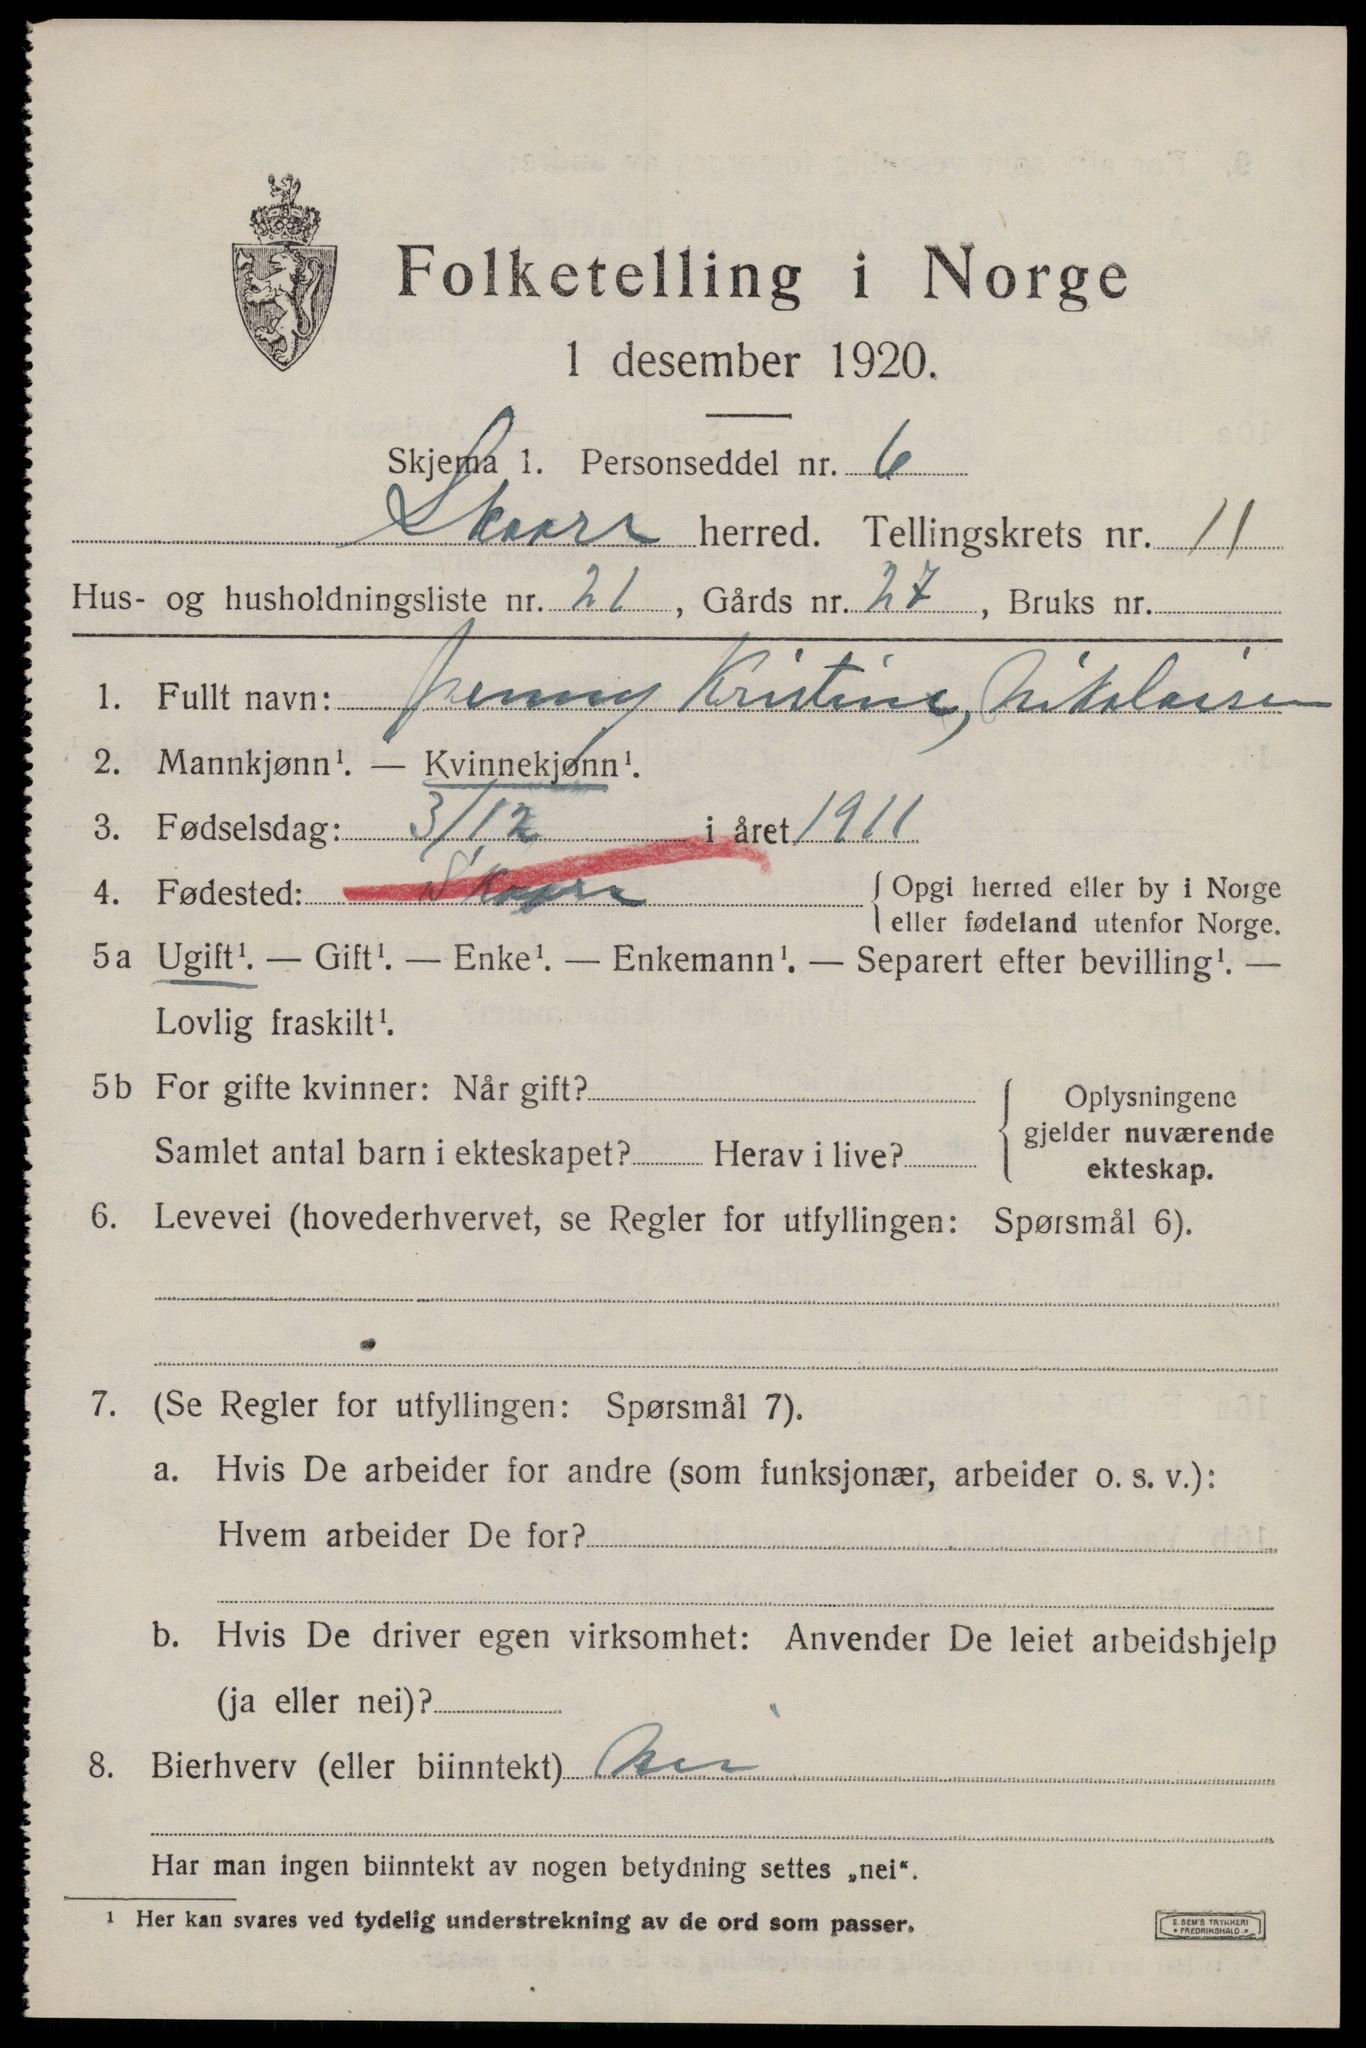 Folketelling i Norge
1 desember 1920.
Skjema 1. Personseddel nr. 6
herred. Tellingskrets nr. 11
Hus- og husholdningsliste nr. 21, Gårds nr. 27, Bruks nr.
1. Fullt navn: Jenny Kristine, Nikolaisen
2. Mannkjønn¹. — Kvinnekjønn¹.
3. Fødselsdag: 3/12 i året 1911
4. Fødested: { Opgi herred eller by i Norge
eller fødeland utenfor Norge.
5a Ugift¹. — Gift¹. — Enke¹. — Enkemann¹. — Separert efter bevilling¹. —
Lovlig fraskilt¹.
5b For gifte kvinner: Når gift? { Oplysningene
gjelder nuværende
Samlet antal barn i ekteskapet? Herav i live? ekteskap.
6. Levevei (hovederhvervet, se Regler for utfyllingen: Spørsmål 6).
7. (Se Regler for utfyllingen: Spørsmål 7).
a. Hvis De arbeider for andre (som funksjonær, arbeider o. s. v.):
Hvem arbeider De for?
b. Hvis De driver egen virksomhet: Anvender De leiet arbeidshjelp
(ja eller nei)?
8. Bierhverv (eller biinntekt) nei
Har man ingen biinntekt av nogen betydning settes „nei“.
¹ Her kan svares ved tydelig understrekning av de ord som passer.
E. SEM'S TRYKKERI
FREDRIKSHALD